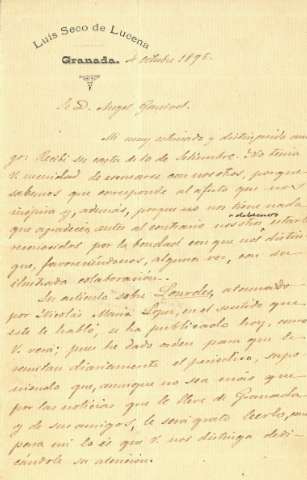 Luis Seco de Lucena
Granada. 4 octubre 1895.
S. D. Angel Ganivet
Mi muy estimado y distinguido ami-
go: Recibí su carta de 10 de Setiembre. No tenía
V. necesidad de con nosotros, porque
sabemos que corresponde al afecto que nos
inspira y, además, porque no nos tiene nada
que agradecer, antes al contrario nosotros debemos estarle
reconocidos por la bondad con que nos distin-
gue, favoreciéndonos, alguna vez, con su
ilustrada colaboración.
Su artículo sobre Lourdes, atenuado
por Nicolás María López, en el sentido que
este le habló, se ha publicado hoy, como
V. verá; pues he dado orden para que le
remitan diariamente el periódico, supo-
niendo que, aunque no sea más que
por las noticias que le lleve de Granada
y de sus amigos, le será grato leerlo, como
para mí lo es que V. nos distinga dedi-
cándole su atención.